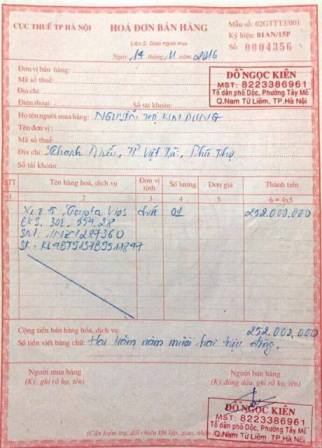 CỤC THUẾ TP HÀ NỘI
HOÁ ĐƠN BÁN HÀNG
Mẫu số: 02GTTT3/001
Liên 2: Giao người mua
Ký hiệu: 01AN/15P
Ngày 14 tháng 11 năm 2016
Số: 0004356
Đơn vị bán hàng:
Mã số thuế:
Địa chỉ:
Điện thoại: Số tài khoản:
ĐỖ NGỌC KIÊN
MST: 8223386961
Tổ dân phố Dộc, Phường Tây Mỗ
Q.Nam Từ Liêm, TP.Hà Nội
Họ tên người mua hàng: NGUYỄN THỊ KIM DUNG
Tên đơn vị:
Mã số thuế:
Địa chỉ: TP Việt Trì, Phú Thọ
Số tài khoản:
STT Tên hàng hoá, dịch vụ Đơn vị tính Số lượng Đơn giá Thành tiền
1 2 3 4 5 6 = 4x5
Xe chiếc 01 252.000.000
BKS: 30E-554.28
Cộng tiền bán hàng hóa, dịch vụ: 252.000.000
Số tiền viết bằng chữ: Hai trăm năm mươi hai triệu đồng.
Người mua hàng Người bán hàng
(Ký, ghi rõ họ, tên) (Ký đóng dấu, ghi rõ họ, tên)
ĐỖ NGỌC KIÊN
MST: 8223386961
Tổ dân phố Dộc, Phường Tây Mỗ
Q.Nam Từ Liêm, TP.Hà Nội